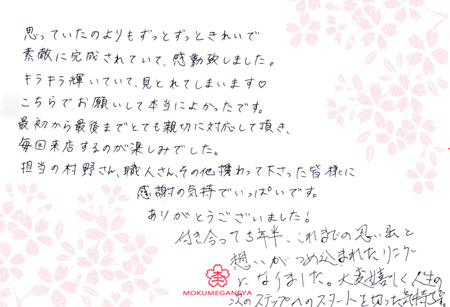 思っていたのよりもずっとずっときれいで
素敵に完成されていて、感動致しました。
キラキラ輝いていて、見とれてしまいます♡
こちらでお願いして本当によかったです。
最初から最後までとても親切に対応して頂き、
毎回来店するのが楽しみでした。
担当の村野さん、職人さん、その他携わって下さった皆様に
感謝の気持でいっぱいです。
ありがとうございました!
付き合って5年半、これまでの思い出と
想いがつめ込まれたリング
になりました。大変嬉しく人生の
次のステップへのスタートを切った気持です。
MOKUMEGANEYA